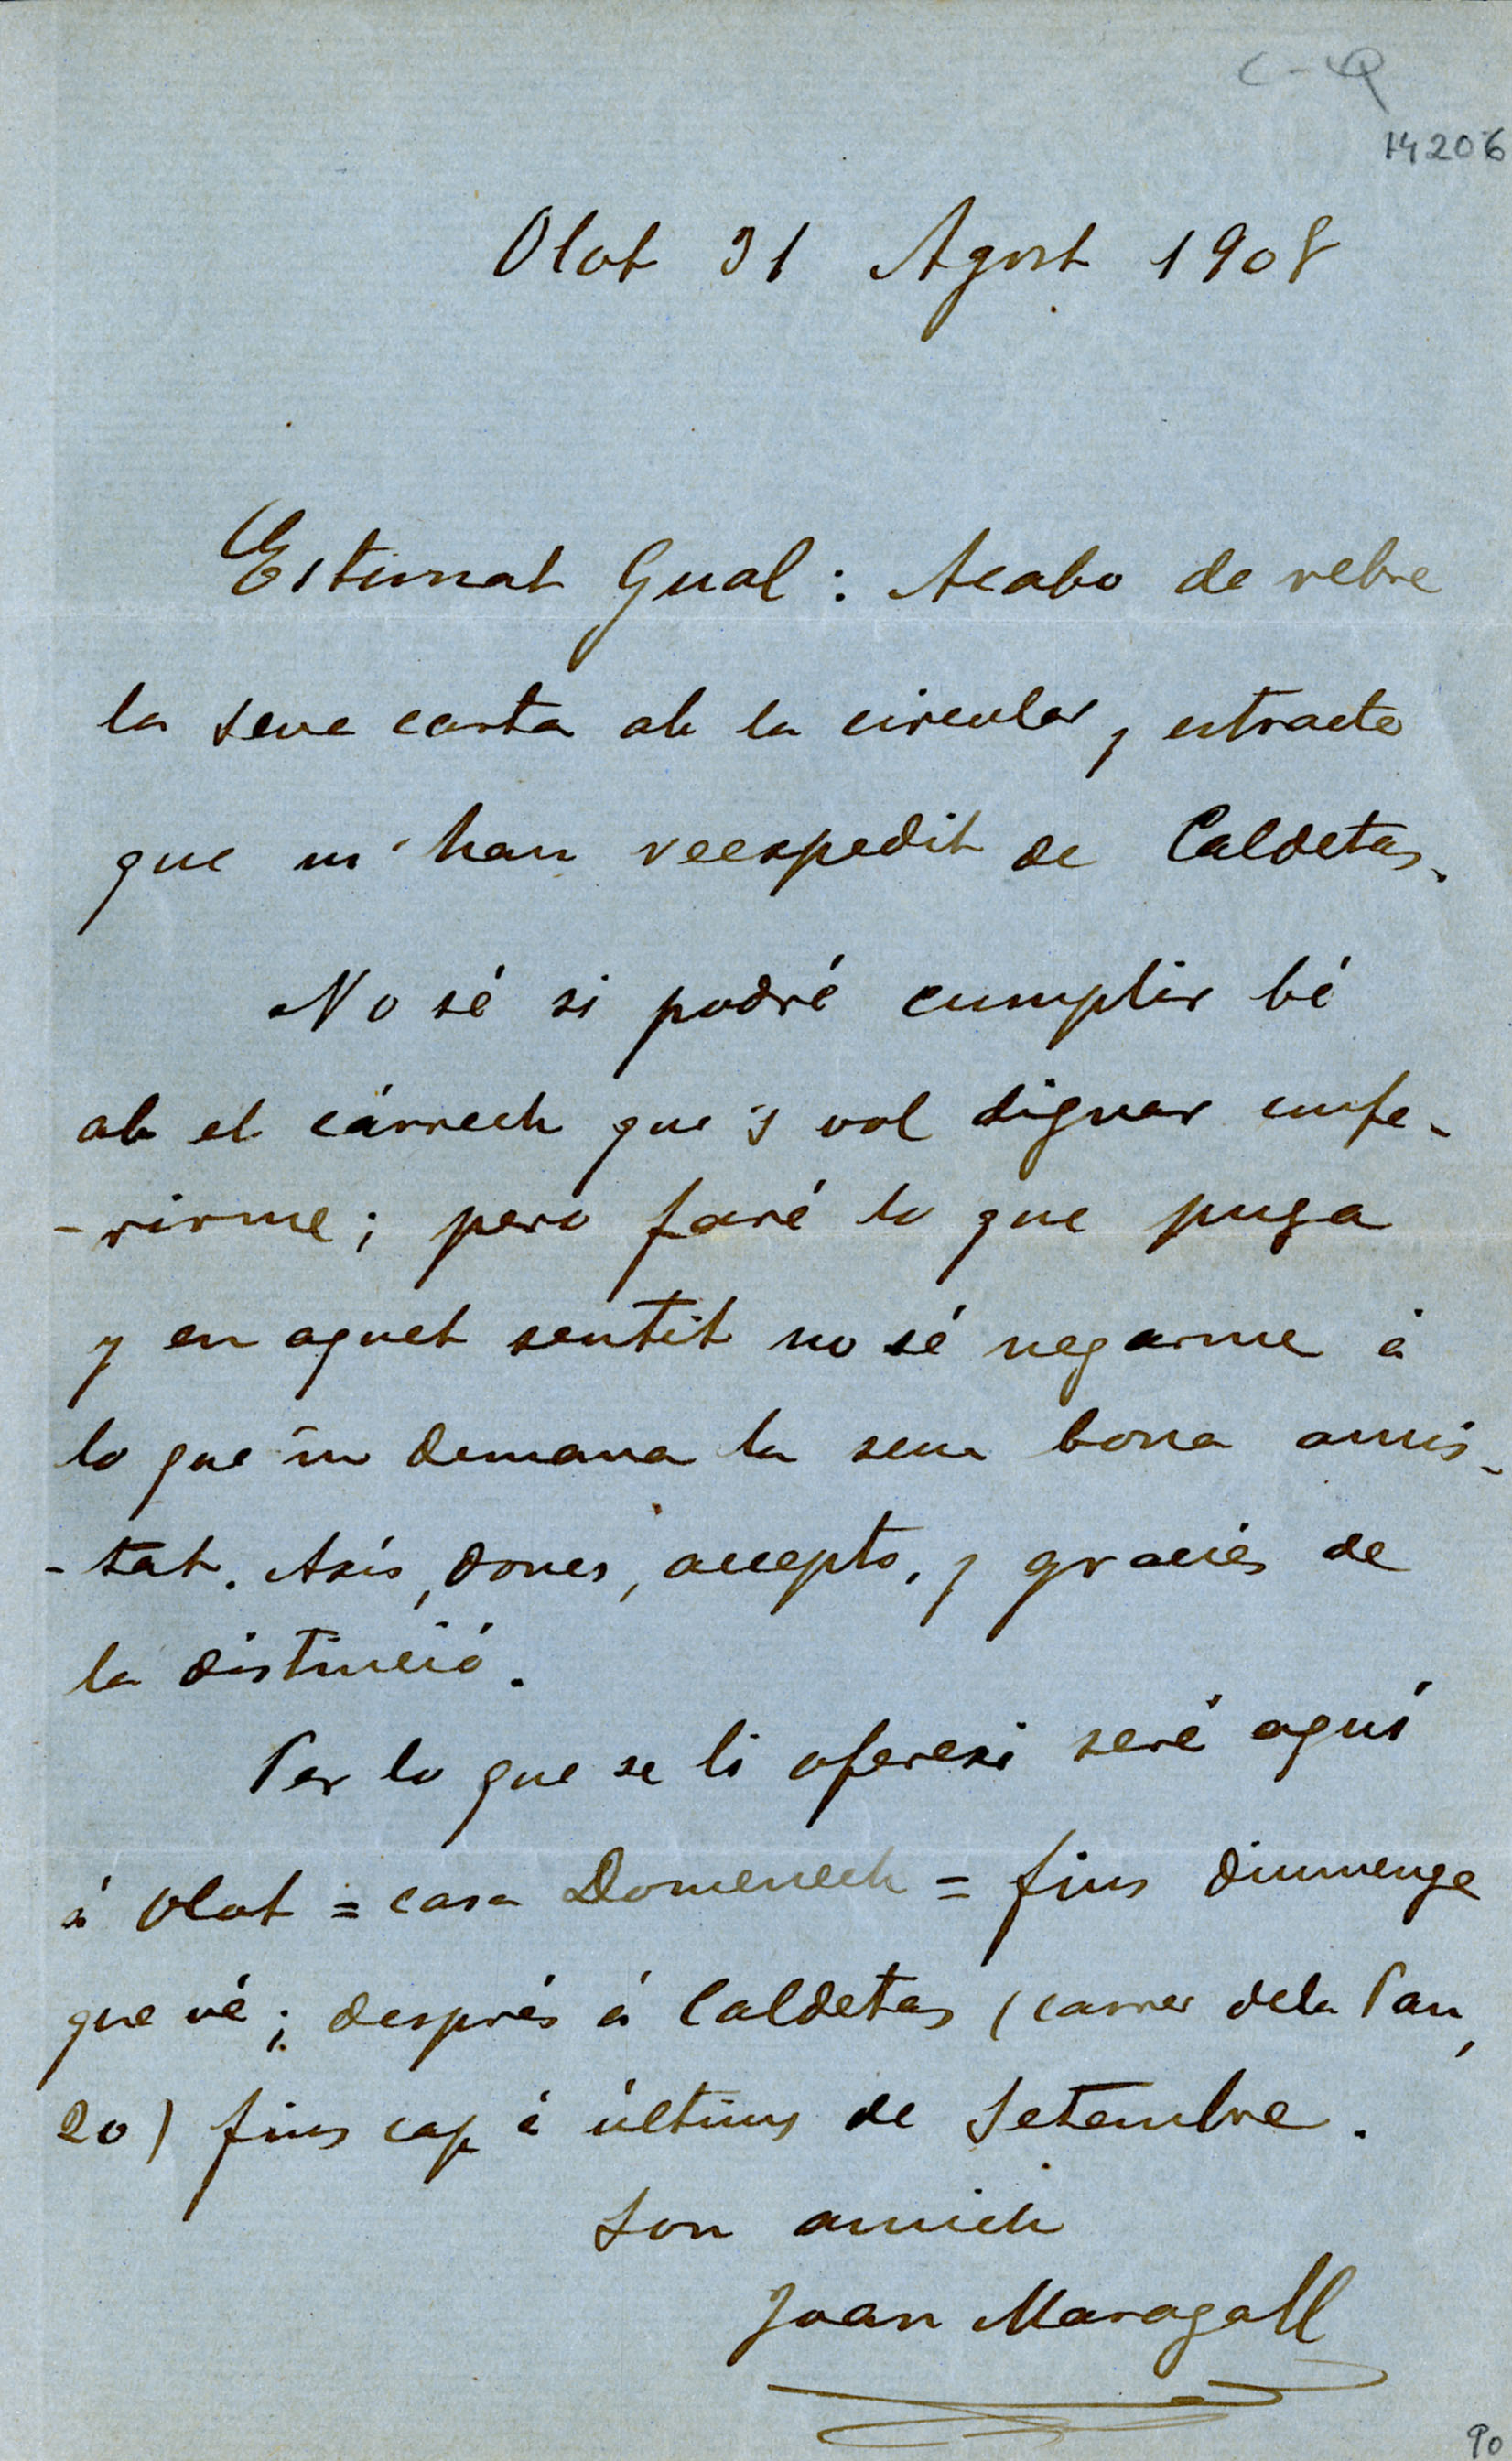 C-4Q
14206
Olot 31 Agost 1908
Estimat Gual: Acabo de rebre
la seva carta ab la circular y extracte
que m'han reexpedit de Caldetas.
No sé si podré cumplir bé
ab el cárrech que's vol dignar confe-
-rirme; pero faré lo que puga
y en aquet sentit no sé negarme á
lo que'm demana la seva bona amis-
-tat. Axis, doncs, accepto, y gracies de
la distinció.
Per lo que se li oferexi seré aquí
á Olot = casa Domenech = fins diumenge
que vé; després á Caldetas (carrer dela Pau,
20) fins cap á últims de Setembre.
Son amich
Joan Maragall
90